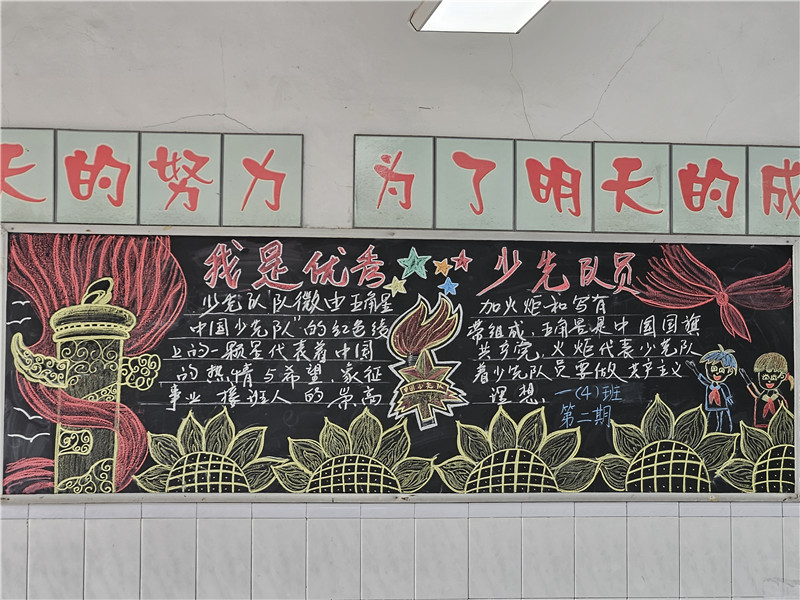 天的努力 为了明天的成
我是优秀 少先队员
少先队队徽由五角星
加火炬和写有
中国少先队"的红色绶
带组成,五角星是中国国旗
上的一颗星代表着中国
共产党,火炬代表少先队
的热情与希望,象征
着少先队员要做共产主义
事业接班人的崇高
理想.
一(4)班
第二期